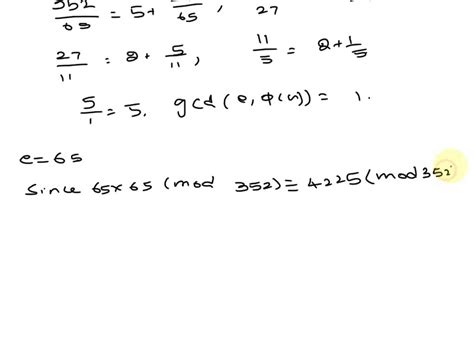 352/65 = 5 + /65 , 27
27/11 = 2 + 5/11 , 11/5 = 2 + 1/5
5/1 = 5. gcd(e, φ(n)) = 1.
e = 65
Since 65 × 65 (mod 352) ≡ 4225 (mod 352